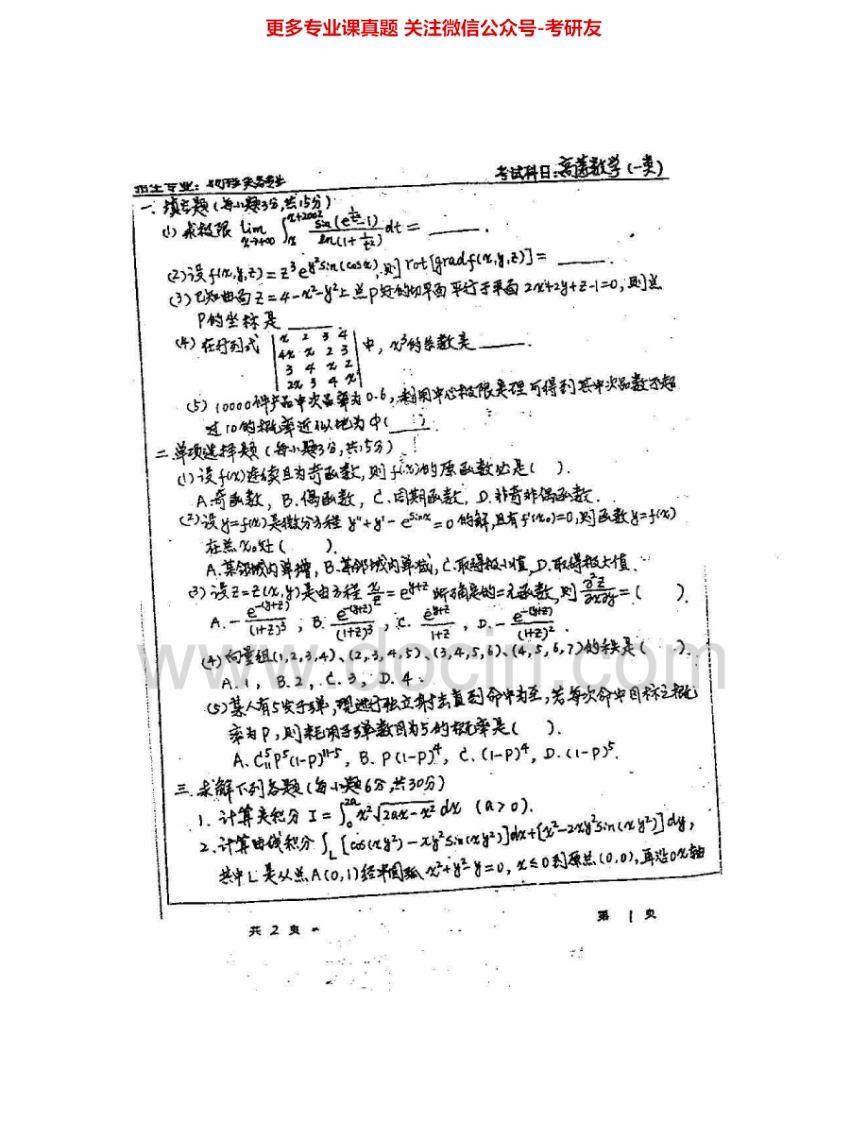 更多专业课真题 关注微信公众号-考研友
招生专业: 考试科目:高等数学(一类)
一、填空题(每小题3分,共15分)
(1) 求极限 lim_{x→+∞} ∫_x^{x+2002} sin(e^{1/t²}-1)/ln(1+1/t²) dt = ____.
(2) 设 f(x,y,z)=z³e^{y²sin(cosx)},则 rot[gradf(x,y,z)]= ____.
(3) 已知曲面 z=4-x²-y² 上点P处的切平面平行于平面 2x+2y+z-1=0,则点
P的坐标是 ____
(4) 在行列式 |x 2 3 4; 4x x 2 3; 3 4 x 2; 2x 3 4 x| 中,x³的系数是 ____.
(5) 10000件产品中次品率为0.6,利用中心极限定理可得到其中次品数不超
过10的概率近似地为Φ( ).
二、单项选择题(每小题3分,共15分)
(1) 设f(x)连续且为奇函数,则f(x)的原函数必是( ).
A.奇函数, B.偶函数, C.周期函数, D.非奇非偶函数.
(2) 设y=f(x)是微分方程 y''+y'-e^{sinx}=0的解,且有f'(x₀)=0,则函数y=f(x)
在点x₀处( ).
A.某邻域内单增, B.某邻域内单减, C.取得极小值, D.取得极大值.
(3) 设z=z(x,y)是由方程 x/z=e^{y+z} 所确定的二元函数,则 ∂²z/∂x∂y=( ).
A. -e^{-(y+z)}/(1+z)³, B. e^{-(y+z)}/(1+z)³, C. e^{y+z}/(1+z), D. -e^{-(y+z)}/(1+z)².
(4) 向量组(1,2,3,4)、(2,3,4,5)、(3,4,5,6)、(4,5,6,7)的秩是( ).
A.1, B.2, C.3, D.4.
www.docin.com
(5) 某人有5发子弹,现进行独立射击直到命中为至,若每次命中目标之概
率为P,则耗用子弹数目为5的概率是( ).
A. C₁₁⁵P⁵(1-P)^{11-5}, B. P(1-P)⁴, C. (1-P)⁴, D. (1-P)⁵.
三、求解下列各题(每小题6分,共30分)
1. 计算定积分 I=∫₀^{2a} x²√(2ax-x²) dx (a>0).
2. 计算曲线积分 ∫_L [cos(xy²)-xy²sin(xy²)]dx+[x²-2xy³sin(xy²)]dy,
其中L是从点A(0,1)经半圆弧 x²+y²-y=0, x≤0到原点(0,0),再沿ox轴
共 2 页 第 1 页